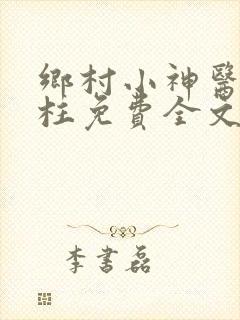 鄉村小神醫
枉免費全文
李書磊